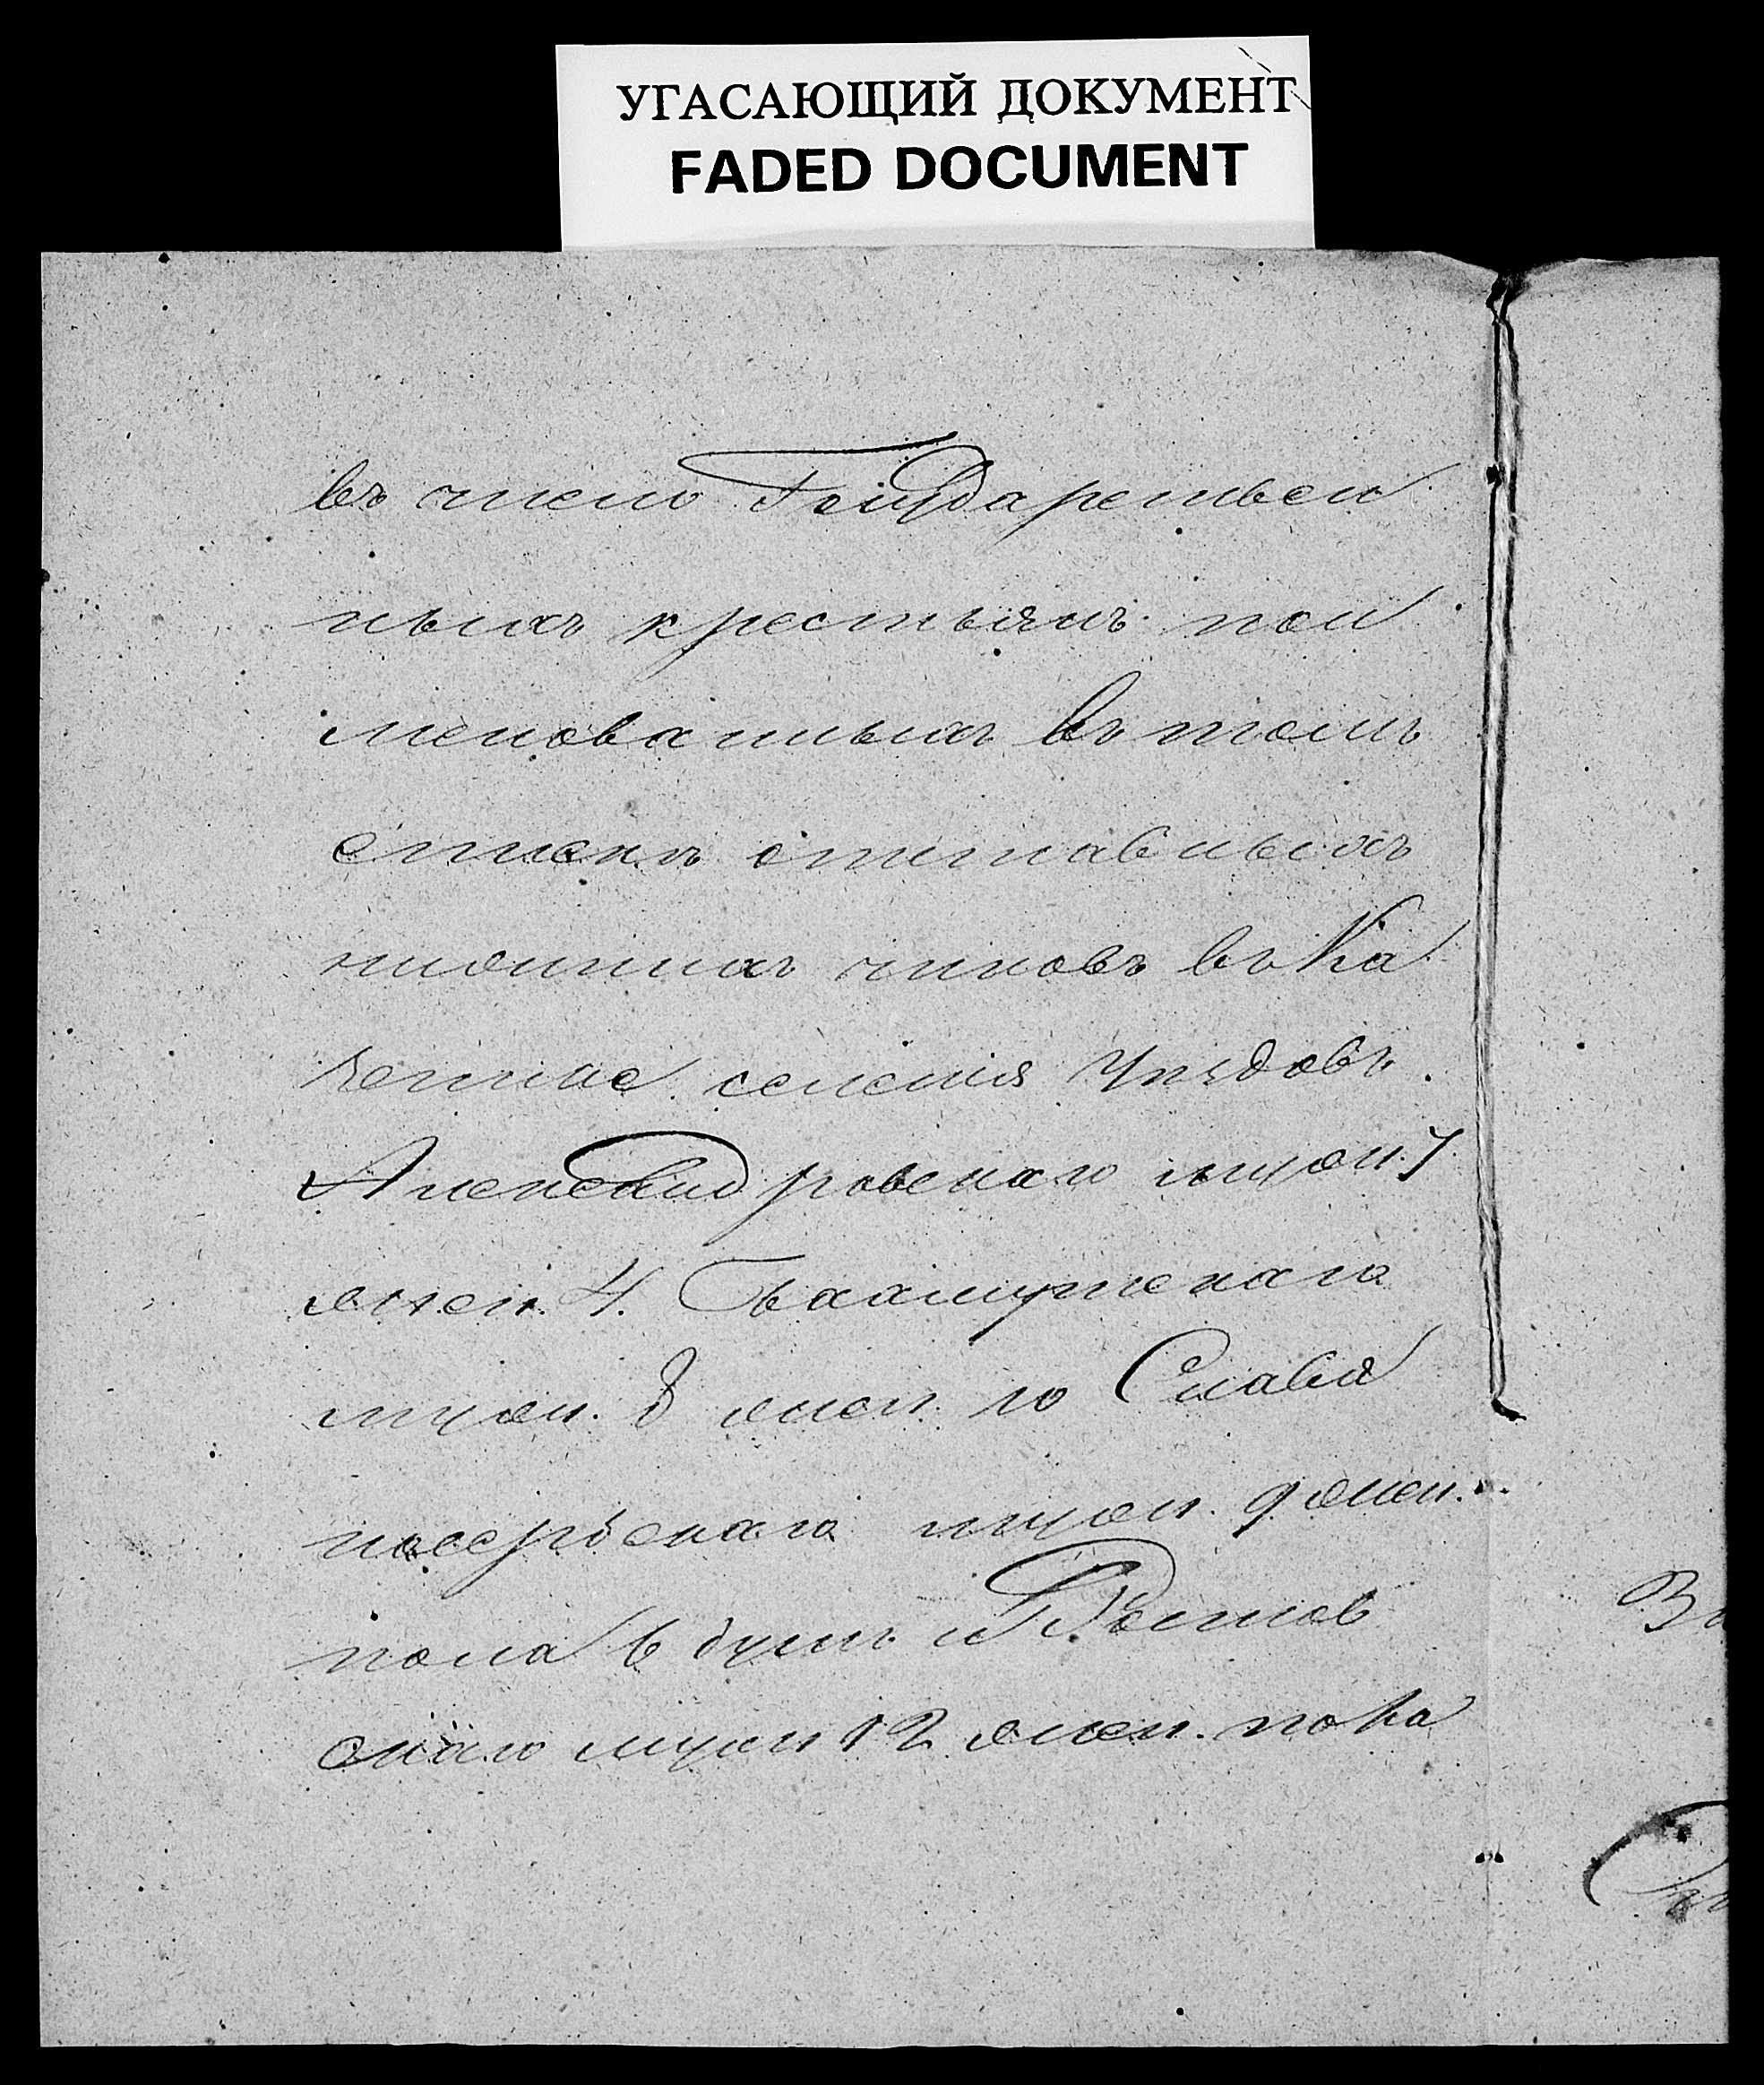 УГАСАЮЩИЙ ДОКУМЕНТ
FADED DOCUMENT
въ число Государствен
ныхъ крестьянъ пои
менованныхъ въ томъ
спискѣ отставныхъ
нижнихъ чиновъ въ Ка
зенные селенія Уѣздовъ
Александровскаго муж. 7
жен. 4. Бахмутскаго
муж. 8 жен. 10 Славя
носербскаго муж. 9 жен.
пола 6 душъ и Ростов
скаго муж 12 жен. пока